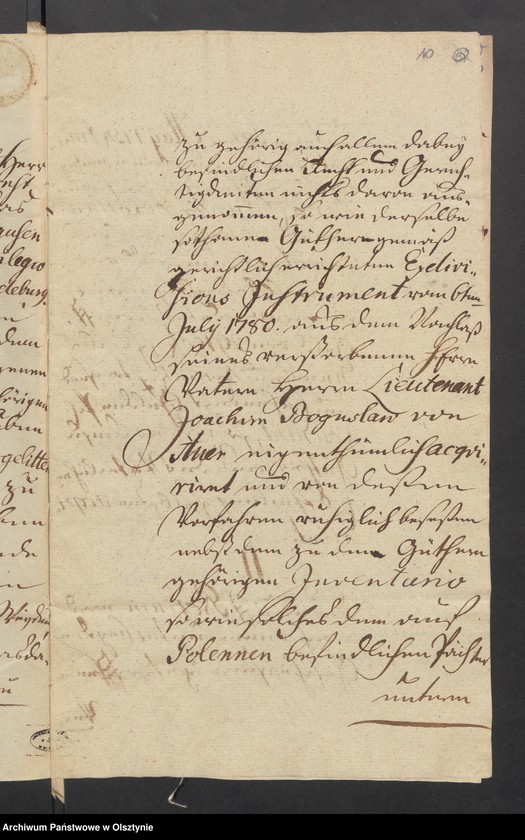 10
Herr
zu gehörig auch allem dabey
befindlichen Recht und Gerech-
tigkeiten nichts davon aus-
genommen, so wie derselbe
sothane Güther gemäß
gerichtlich errichteten Exdivi-
sions Instrument vom 6ten
July 1780. aus dem Nachlaß
seines verstorbenen Herrn
Vatern Herrn Lieutenant
Joachim Boguslaw von
Auer eigenthümlich acqvi-
riret und von deßen
Vorfahren ruhiglich beseßen
nebst dem zu den Güthern
gehörigen Inventario
so wie solches dem auf
Polennen befindlichen Pächter
unterm
Archiwum Państwowe w Olsztynie